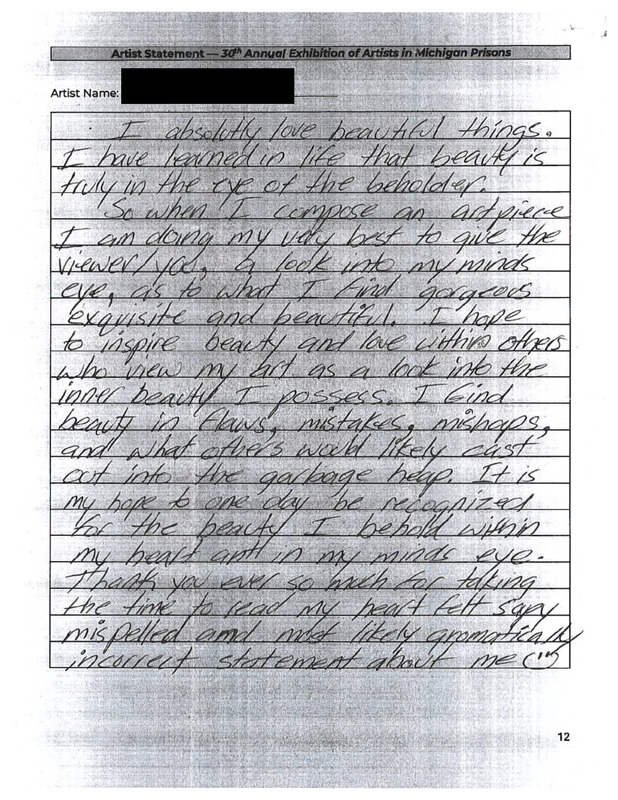 Artist Statement — 30th Annual Exhibition of Artists in Michigan Prisons
Artist Name:
I absolutly love beautiful things.
I have learned in life that beauty is
truly in the eye of the beholder.
So when I compose an art piece
I am doing my very best to give the
viewer/you, a look into my minds
eye, as to what I find gorgeous
exquisite and beautiful. I hope
to inspire beauty and love within others
who view my art as a look into the
inner beauty I possess. I find
beauty in flaws, mistakes, mishaps,
and what others would likely cast
out into the garbage heap. It is
my hope to one day be recognized
for the beauty I behold within
my heart and in my minds eye.
Thank you ever so much for taking
the time to read my heart felt sapy
mispelled and most likely gromatically
incorrect statement about me
12